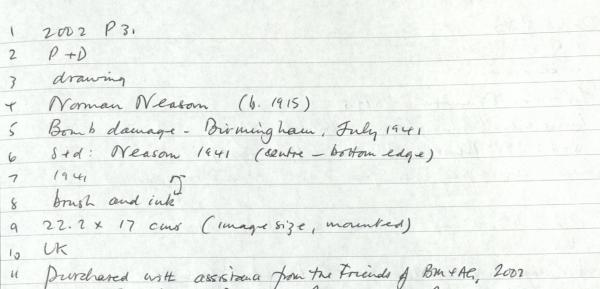 1 2002 P 31
2 P + D
3 drawing
4 Norman Neasom (b. 1915)
5 Bomb damage - Birmingham, July 1941
6 S+d: Neasom 1941 (centre - bottom edge)
7 1941
8 brush and ink
9 22.2 x 17 cms (image size, mounted)
10 UK
11 purchased with assistance from the Friends of BM+AG, 2002